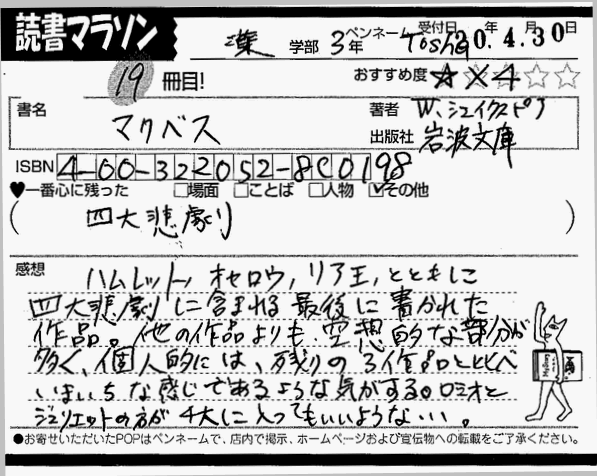 読書マラソン
漢 学部 3年 ペンネーム Tosha
受付日 年 月 日
0.4.30
19冊目!
おすすめ度 ★★4☆☆
書名
マクベス
著者 W.シェイクスピア
出版社 岩波文庫
ISBN 4-00-322052-8C0198
♥一番心に残った □場面 □ことば □人物 ☑その他
( 四大悲劇 )
感想
ハムレット, オセロウ, リア王, とともに
四大悲劇に含まれる最後に書かれた
作品。他の作品よりも空想的な部分が
多く、個人的には、残りの3作品と比べ
いまいちな感じであるような気がする。ロミオと
ジュリエットの方が4大に入ってもいいような…。
●お寄せいただいたPOPはペンネームで、店内で掲示、ホームページおよび宣伝物への転載をご了承ください。